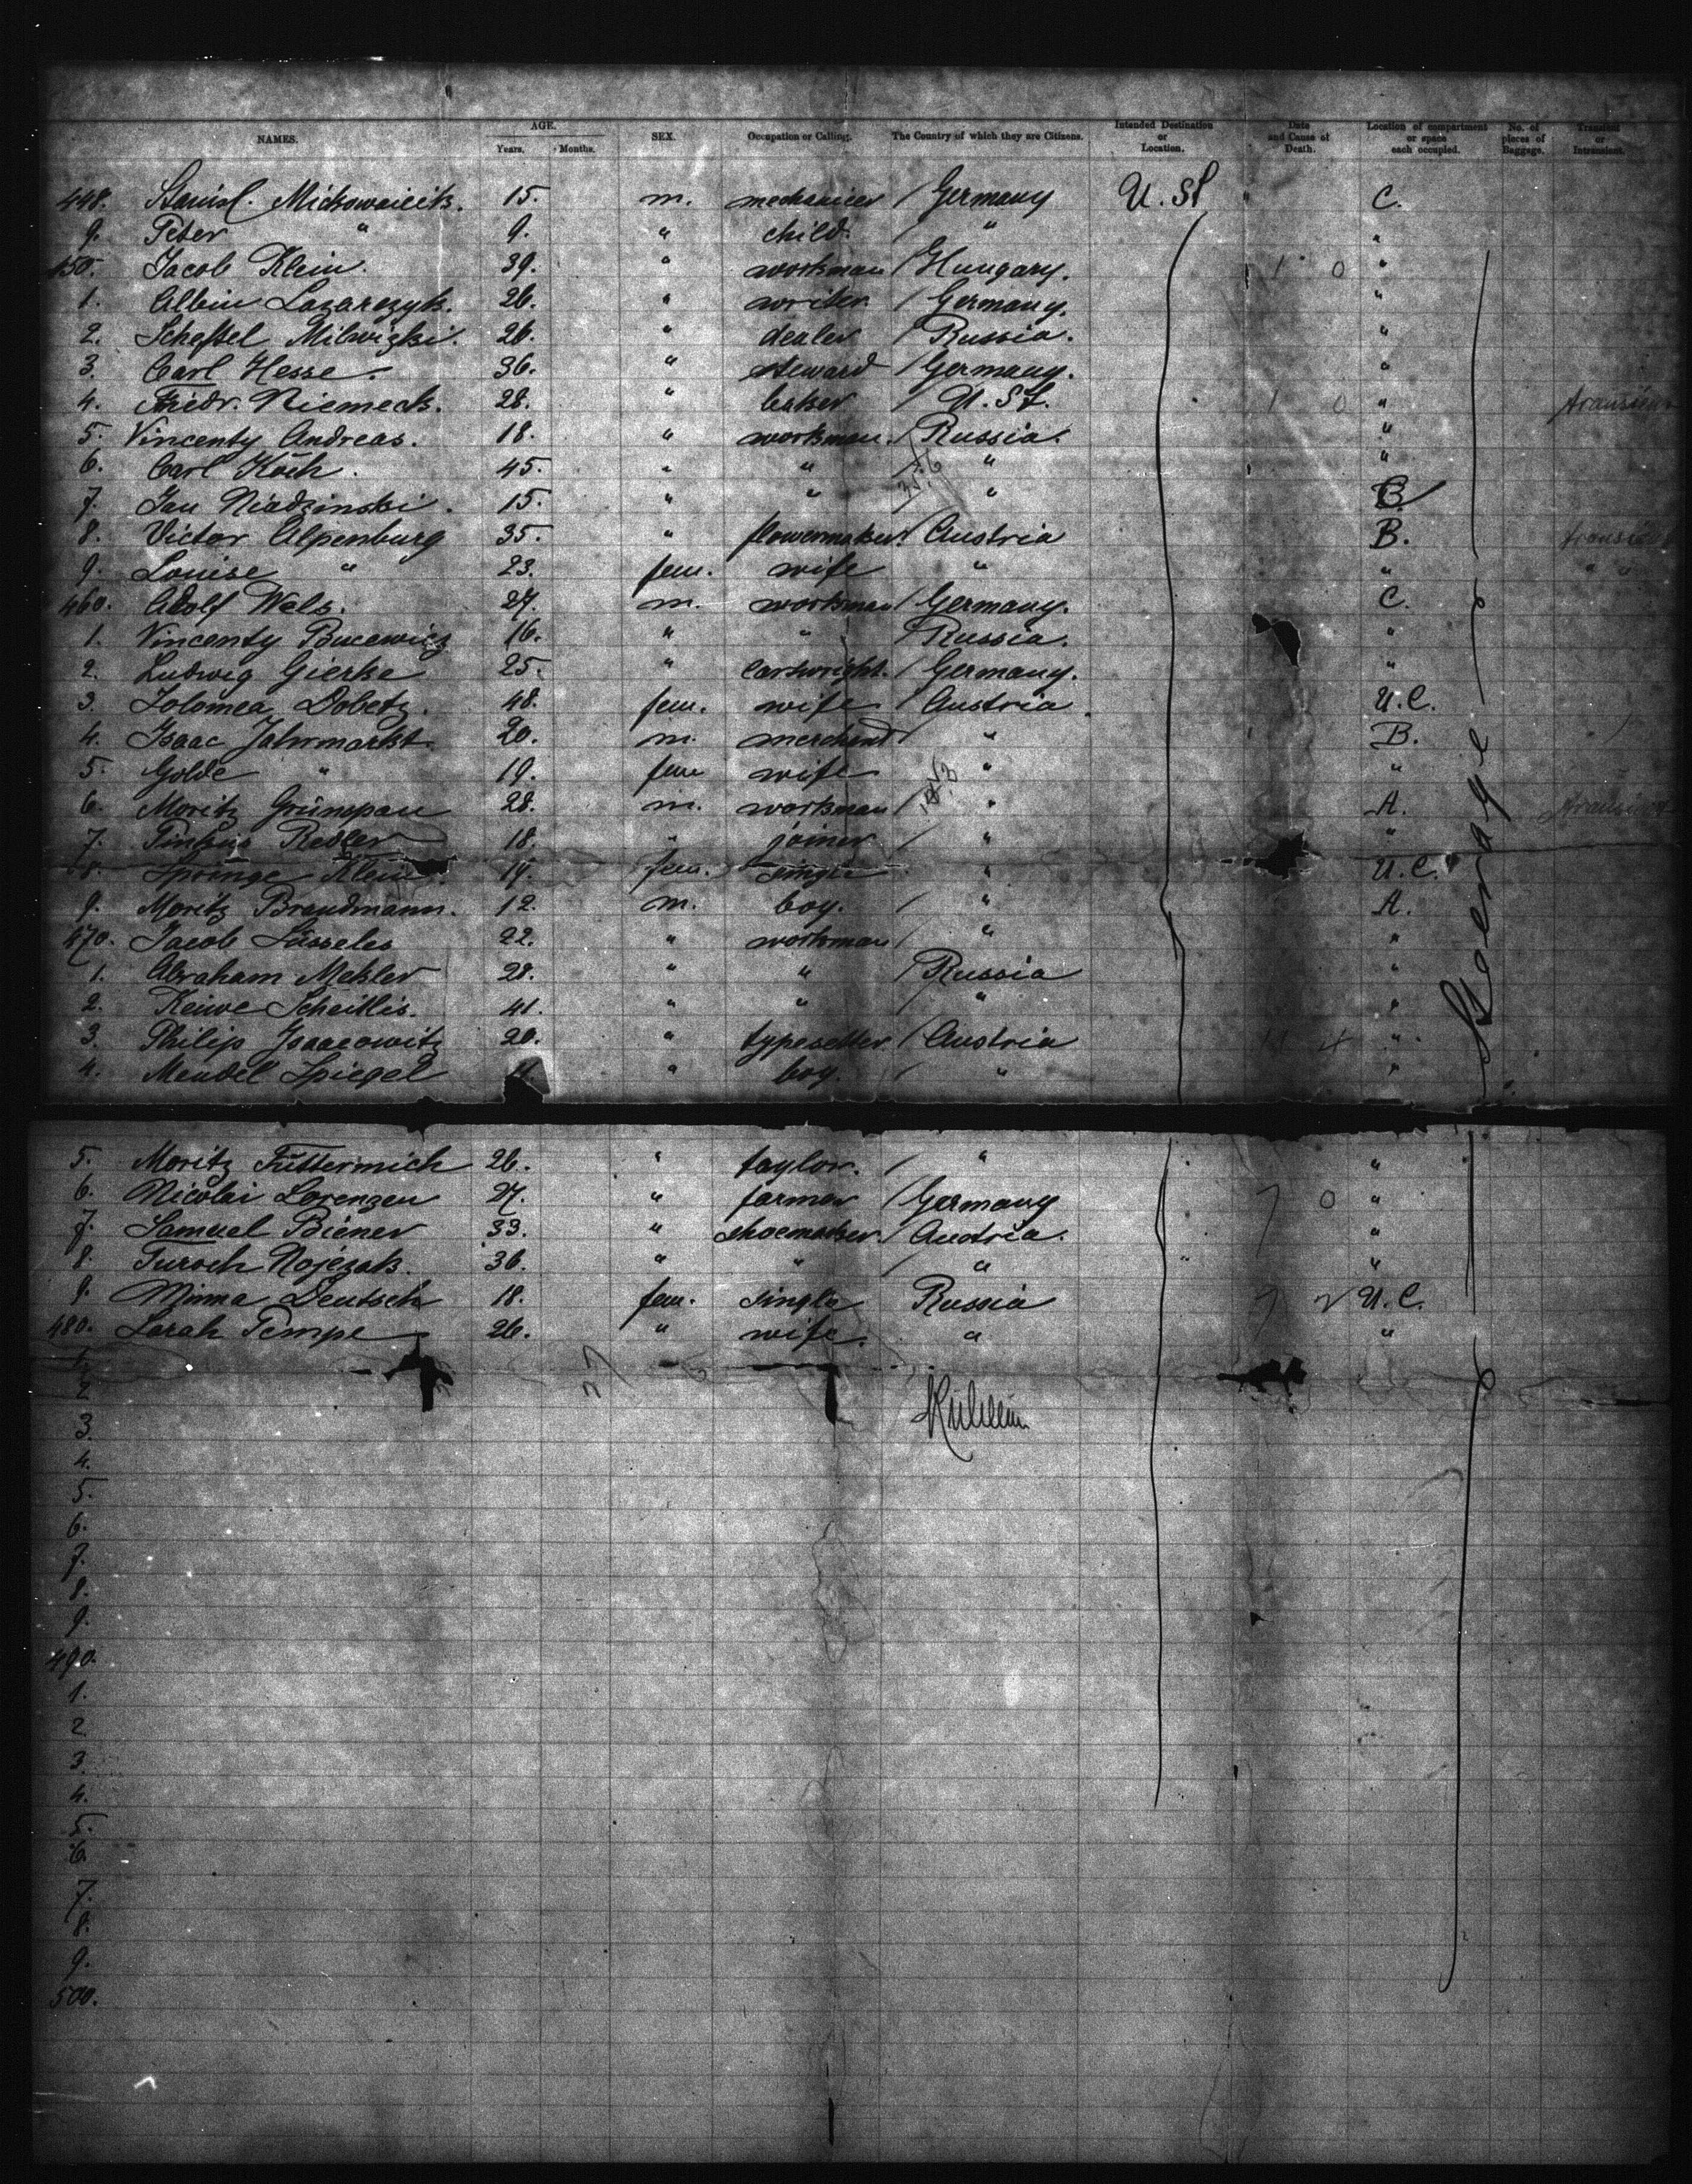 NAMES. AGE. Years. Months. SEX. Occupation or Calling. The Country of which they are Citizens. Intended Destination or Location. Date and Cause of Death. Location of compartment or space each occupied. No. of pieces of Baggage. Transient or Intransient.
448. Stanisl. 15. m. mechanicer / Germany U. St C.
9. Peter " 9. " child. / " "
450. Jacob Klein. 39. " workman / Hungary. 1 0 "
1. Albin Lazarczyk. 26. " writer / Germany. "
2. Scheftel Milwizki. 26. " dealer / Russia. "
3. Carl Hesse. 36. " steward / Germany. "
4. Friedr. Niemeck. 28. " baker / U. St. 1 0 " transient
5. Vincenty Andreas. 18. " workman. / Russia. "
6. Carl Koch. 45. " " / " "
7. Jan Niadzinski. 15. " " " B
8. Victor Alpenburg 35. " flowermaker. / Austria B. transient
9. Louise " 23. fem. wife " " " "
460. Adolf Wels. 27. m. workman / Germany. C.
1. Vincenty Bucewicz 16. " " Russia. "
2. Ludwig Gierke 25. " cartwright. / Germany. "
3. Solomea Dobetz. 48. fem. wife / Austria. U.C.
4. Isaac Jahrmarkt 20. m. merchand " B.
5. Golde " 19. fem wife " "
6. Moritz Grünspan 28. m. workman / " A. transient
7. Pinkus Redler 18. " joiner / " "
8. Klein. 19. fem. single " U.C.
9. Moritz Brandmann. 12. m. boy. / " A.
470. Jacob Süsseles 22. " workman / " "
1. Abraham Mekler 28. " " / Russia "
2. Keiwe Scheitlis. 41. " " " "
3. Philip Isaacowitz 20. " typesetter / Austria 11 4 "
4. Mendel Spiegel 11. " boy. / " "
Steerage
5. Moritz Futtermich 26. " taylor. / " "
6. Nicolai Lorenzen 27. " farmer / Germany 7 0 "
7. Samuel Biener 33. " shoemaker. / Austria. "
8. Turoch Nojezak. 36. " " / " "
9. Minna Deutsch 18. fem. single Russia 7 2 U.C.
480. Sarah Tempe 26. " wife. " "
1.
2.
3.
4.
5.
6.
7.
8.
9.
490.
1.
2
3.
4.
5.
6.
7.
8.
9.
500.